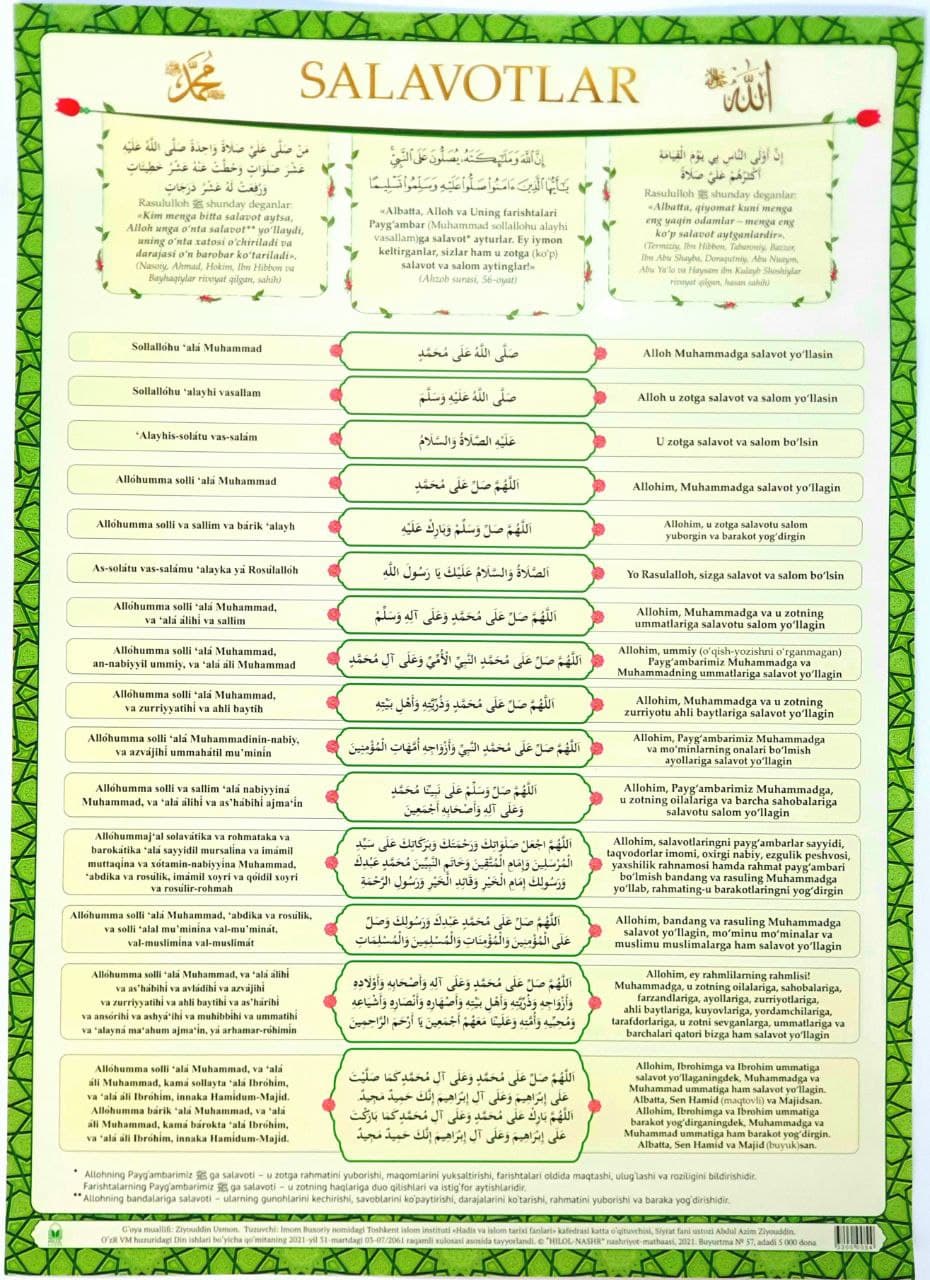 محمد
SALAVOTLAR
الله
مَنْ صَلَّى عَلَيَّ صَلَاةً وَاحِدَةً صَلَّى اللَّهُ عَلَيْهِ
عَشْرَ صَلَوَاتٍ وَحُطَّتْ عَنْهُ عَشْرُ خَطِيئَاتٍ
وَرُفِعَتْ لَهُ عَشْرُ دَرَجَاتٍ
Rasululloh ﷺ shunday deganlar:
«Kim menga bitta salavot aytsa,
Alloh unga o‘nta salavot** yo‘llaydi,
uning o‘nta xatosi o‘chiriladi va
darajasi o‘n barobar ko‘tariladi».
(Nasoiy, Ahmad, Hokim, Ibn Hibbon va
Bayhaqiylar rivoyat qilgan, sahih)
إِنَّ ٱللَّهَ وَمَلَـٰٓئِكَتَهُۥ يُصَلُّونَ عَلَى ٱلنَّبِيِّ
يَـٰٓأَيُّهَا ٱلَّذِينَ ءَامَنُوا۟ صَلُّوا۟ عَلَيْهِ وَسَلِّمُوا۟ تَسْلِيمًا
«Albatta, Alloh va Uning farishtalari
Payg‘ambar (Muhammad sollallohu alayhi
vasallam)ga salavot* ayturlar. Ey iymon
keltirganlar, sizlar ham u zotga (ko‘p)
salavot va salom aytinglar!»
(Ahzob surasi, 56-oyat)
إِنَّ أَوْلَى النَّاسِ بِي يَوْمَ الْقِيَامَةِ
أَكْثَرُهُمْ عَلَيَّ صَلَاةً
Rasululloh ﷺ shunday deganlar:
«Albatta, qiyomat kuni menga
eng yaqin odamlar – menga eng
ko‘p salavot aytganlardir».
(Termiziy, Ibn Hibbon, Taboroniy, Bazzor,
Ibn Abu Shayba, Doraqutniy, Abu Nuaym,
Abu Ya’lo va Haysam ibn Kulayb Shoshiylar
rivoyat qilgan, hasan sahih)
Sollallóhu ‘alá Muhammad
صَلَّى اللَّهُ عَلَى مُحَمَّدٍ
Alloh Muhammadga salavot yo‘llasin
Sollallóhu ‘alayhi vasallam
صَلَّى اللَّهُ عَلَيْهِ وَسَلَّمَ
Alloh u zotga salavot va salom yo‘llasin
‘Alayhis-solátu vas-salám
عَلَيْهِ الصَّلَاةُ وَالسَّلَامُ
U zotga salavot va salom bo‘lsin
Allóhumma solli ‘alá Muhammad
اَللَّهُمَّ صَلِّ عَلَى مُحَمَّدٍ
Allohim, Muhammadga salavot yo‘llagin
Allóhumma solli va sallim va bárik ‘alayh
اَللَّهُمَّ صَلِّ وَسَلِّمْ وَبَارِكْ عَلَيْهِ
Allohim, u zotga salavotu salom
yuborgin va barakot yog‘dirgin
As-solátu vas-salámu ‘alayka yá Rosúlallóh
اَلصَّلَاةُ وَالسَّلَامُ عَلَيْكَ يَا رَسُولَ اللَّهِ
Yo Rasulalloh, sizga salavot va salom bo‘lsin
Allóhumma solli ‘alá Muhammad,
va ‘alá álihí va sallim
اَللَّهُمَّ صَلِّ عَلَى مُحَمَّدٍ وَعَلَى آلِهِ وَسَلِّمْ
Allohim, Muhammadga va u zotning
ummatlariga salavotu salom yo‘llagin
Allóhumma solli ‘alá Muhammad,
an-nabiyyil ummiy, va ‘alá áli Muhammad
اَللَّهُمَّ صَلِّ عَلَى مُحَمَّدٍ النَّبِيِّ الْأُمِّيِّ وَعَلَى آلِ مُحَمَّدٍ
Allohim, ummiy (o‘qish-yozishni o‘rganmagan)
Payg‘ambarimiz Muhammadga va
Muhammadning ummatlariga salavot yo‘llagin
Allóhumma solli ‘alá Muhammad,
va zurriyyatihí va ahli baytih
اَللَّهُمَّ صَلِّ عَلَى مُحَمَّدٍ وَذُرِّيَّتِهِ وَأَهْلِ بَيْتِهِ
Allohim, Muhammadga va u zotning
zurriyotu ahli baytlariga salavot yo‘llagin
Allóhumma solli ‘alá Muhammadinin-nabiy,
va azvájihí ummahátil mu’minín
اَللَّهُمَّ صَلِّ عَلَى مُحَمَّدٍ النَّبِيِّ وَأَزْوَاجِهِ أُمَّهَاتِ الْمُؤْمِنِينَ
Allohim, Payg‘ambarimiz Muhammadga
va mo‘minlarning onalari bo‘lmish
ayollariga salavot yo‘llagin
Allóhumma solli va sallim ‘alá nabiyyiná
Muhammad, va ‘alá álihí va as’hábihí ajma‘ín
اَللَّهُمَّ صَلِّ وَسَلِّمْ عَلَى نَبِيِّنَا مُحَمَّدٍ
وَعَلَى آلِهِ وَأَصْحَابِهِ أَجْمَعِينَ
Allohim, Payg‘ambarimiz Muhammadga,
u zotning oilalariga va barcha sahobalariga
salavotu salom yo‘llagin
Allóhummaj‘al solavátika va rohmataka va
barokátika ‘alá sayyidil mursalína va imámil
muttaqína va xótamin-nabiyyína Muhammad,
‘abdika va rosúlik, imámil xoyri va qóidil xoyri
va rosúlir-rohmah
اَللَّهُمَّ اجْعَلْ صَلَوَاتِكَ وَرَحْمَتَكَ وَبَرَكَاتِكَ عَلَى سَيِّدِ
الْمُرْسَلِينَ وَإِمَامِ الْمُتَّقِينَ وَخَاتَمِ النَّبِيِّينَ مُحَمَّدٍ عَبْدِكَ
وَرَسُولِكَ إِمَامِ الْخَيْرِ وَقَائِدِ الْخَيْرِ وَرَسُولِ الرَّحْمَةِ
Allohim, salavotlaringni payg‘ambarlar sayyidi,
taqvodorlar imomi, oxirgi nabiy, ezgulik peshvosi,
yaxshilik rahnamosi hamda rahmat payg‘ambari
bo‘lmish bandang va rasuling Muhammadga
yo‘llab, rahmating-u barakotlaringni yog‘dirgin
Allóhumma solli ‘alá Muhammad, ‘abdika va rosúlik,
va solli ‘alal mu’minína val-mu’minát,
val-muslimína val-muslimát
اَللَّهُمَّ صَلِّ عَلَى مُحَمَّدٍ عَبْدِكَ وَرَسُولِكَ وَصَلِّ
عَلَى الْمُؤْمِنِينَ وَالْمُؤْمِنَاتِ وَالْمُسْلِمِينَ وَالْمُسْلِمَاتِ
Allohim, bandang va rasuling Muhammadga
salavot yo‘llagin, mo‘minu mo‘minalar va
muslimu muslimalarga ham salavot yo‘llagin
Allóhumma solli ‘alá Muhammad, va ‘alá álihí
va as’hábihí va avládihí va azvájihí
va zurriyyatihí va ahli baytihí va as’hárihí
va ansórihí va ashyá‘ihí va muhibbíhi va ummatihí
va ‘alayná ma‘ahum ajma‘ín, yá arhamar-róhimín
اَللَّهُمَّ صَلِّ عَلَى مُحَمَّدٍ وَعَلَى آلِهِ وَأَصْحَابِهِ وَأَوْلَادِهِ
وَأَزْوَاجِهِ وَذُرِّيَّتِهِ وَأَهْلِ بَيْتِهِ وَأَصْهَارِهِ وَأَنْصَارِهِ وَأَشْيَاعِهِ
وَمُحِبِّيهِ وَأُمَّتِهِ وَعَلَيْنَا مَعَهُمْ أَجْمَعِينَ يَا أَرْحَمَ الرَّاحِمِينَ
Allohim, ey rahmlilarning rahmlisi!
Muhammadga, u zotning oilalariga, sahobalariga,
farzandlariga, ayollariga, zurriyotlariga,
ahli baytlariga, kuyovlariga, yordamchilariga,
tarafdorlariga, u zotni sevganlarga, ummatlariga va
barchalari qatori bizga ham salavot yo‘llagin
Allóhumma solli ‘alá Muhammad, va ‘alá
áli Muhammad, kamá sollayta ‘alá Ibróhím,
va ‘alá áli Ibróhím, innaka Hamídum-Majíd.
Allóhumma bárik ‘alá Muhammad, va ‘alá
áli Muhammad, kamá bárokta ‘alá Ibróhím,
va ‘alá áli Ibróhím, innaka Hamídum-Majíd.
اَللَّهُمَّ صَلِّ عَلَى مُحَمَّدٍ وَعَلَى آلِ مُحَمَّدٍ كَمَا صَلَّيْتَ
عَلَى إِبْرَاهِيمَ وَعَلَى آلِ إِبْرَاهِيمَ إِنَّكَ حَمِيدٌ مَجِيدٌ.
اَللَّهُمَّ بَارِكْ عَلَى مُحَمَّدٍ وَعَلَى آلِ مُحَمَّدٍ كَمَا بَارَكْتَ
عَلَى إِبْرَاهِيمَ وَعَلَى آلِ إِبْرَاهِيمَ إِنَّكَ حَمِيدٌ مَجِيدٌ
Allohim, Ibrohimga va Ibrohim ummatiga
salavot yo‘llaganingdek, Muhammadga va
Muhammad ummatiga ham salavot yo‘llagin.
Albatta, Sen Hamid (maqtovli) va Majidsan.
Allohim, Ibrohimga va Ibrohim ummatiga
barakot yog‘dirganingdek, Muhammadga va
Muhammad ummatiga ham barakot yog‘dirgin.
Albatta, Sen Hamid va Majid (buyuk)san.
* Allohning Payg‘ambarimiz ﷺ ga salavoti – u zotga rahmatini yuborishi, maqomlarini yuksaltirishi, farishtalari oldida maqtashi, ulug‘lashi va roziligini bildirishidir.
Farishtalarning Payg‘ambarimiz ﷺ ga salavoti – u zotning haqlariga duo qilishlari va istig‘for aytishlaridir.
** Allohning bandalariga salavoti – ularning gunohlarini kechirishi, savoblarini ko‘paytirishi, darajalarini ko‘tarishi, rahmatini yuborishi va baraka yog‘dirishidir.
G‘oya muallifi: Ziyouddin Usmon. Tuzuvchi: Imom Buxoriy nomidagi Toshkent islom instituti «Hadis va islom tarixi fanlari» kafedrasi katta o‘qituvchisi, Siyrat fani ustozi Abdul Azim Ziyouddin.
O‘zR VM huzuridagi Din ishlari bo‘yicha qo‘mitaning 2021-yil 31-martdagi 03-07/2061 raqamli xulosasi asosida tayyorlandi. © "HILOL-NASHR" nashriyot-matbaasi, 2021. Buyurtma № 57, adadi 5 000 dona.